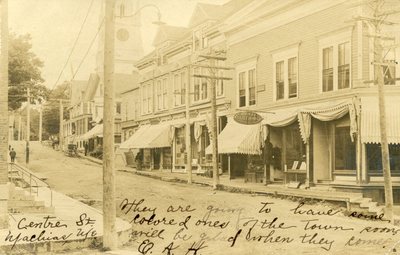 They are going to have some
colored ones of the town soon
will be glad when they come
C. A. H.
Centre St.
Machias Me